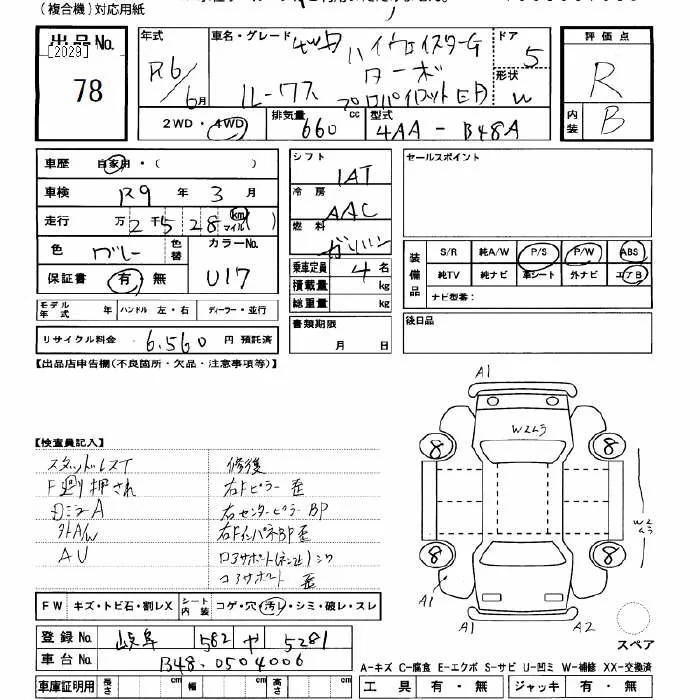 (複合機)対応用紙
出品No. [2029] 78
年式 R6/6月
車名・グレード 4WD ハイウェイスターG ターボ プロパイロットED
ルークス
ドア 5
形状 W
評価点 R
内装 B
2WD・4WD 排気量 660 cc 型式 4AA-B48A
車歴 自家用・( )
車検 R9 年 3 月
走行 2万5千28 km マイル ( )
色 グレー 色替 カラーNo. U17
保証書 有・無
モデル年式 年 ハンドル 左・右 ディーラー・並行
リサイクル料金 6,560 円 預託済
シフト IAT
冷房 AAC
燃料 ガソリン
乗車定員 4 名
積載量 kg
総重量 kg
書類期限 月 日
セールスポイント
装備品 S/R 純A/W P/S P/W ABS
純TV 純ナビ 革シート 外ナビ エアB
ナビ型番:
後日品
【出品店申告欄(不良箇所・欠品・注意事項等)】
【検査員記入】
スタッドレスT
F廻り押され
外A/W
AU
修復
右Fピラー歪
右センターピラーBP
右FインパネBP歪
コアサポート歪
A1
W2
8 8
8 8
W2
A1
A1 A2
スペア
FW キズ・トビ石・割レX シート内装 コゲ・穴・汚レ・シミ・破レ・スレ
登録No. 岐阜 582 や 5281
車台No. B48-0504006
車庫証明用 長さ cm 幅 cm 高さ cm
A-キズ C-腐食 E-エクボ S-サビ U-凹ミ W-補修 XX-交換済
工具 有・無 ジャッキ 有・無